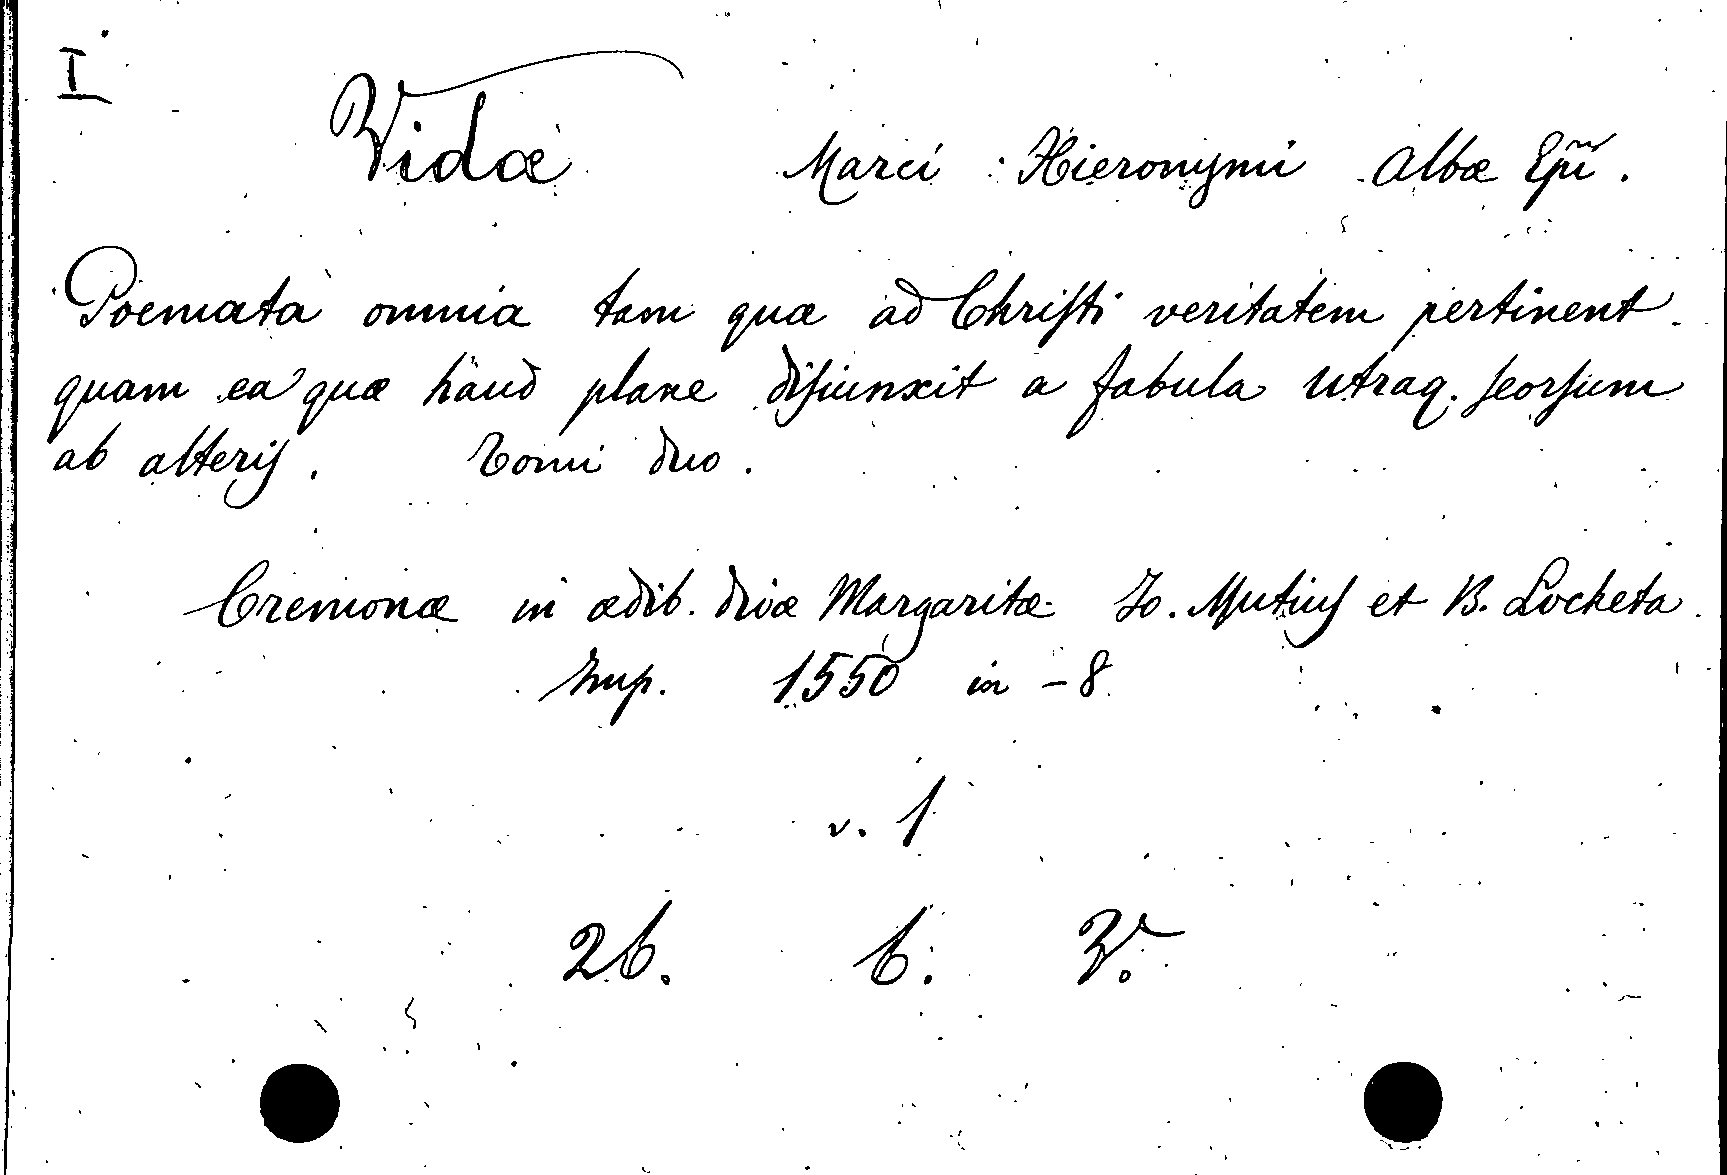 I
Vidæ Marci Hieronymi Albæ Epĩi.
Poemata omnia tam quæ ad Chriſti veritatem pertinent
quam ea quæ haud plane diſiunxit a fabula utraq. ſeorſum
ab alteriſ. Tomi duo.
Cremonæ in ædib. divæ Margaritæ Io. Mutiuſ et B. Locheta
Imp. 1550 in-8
v. 1
26. 6. V.